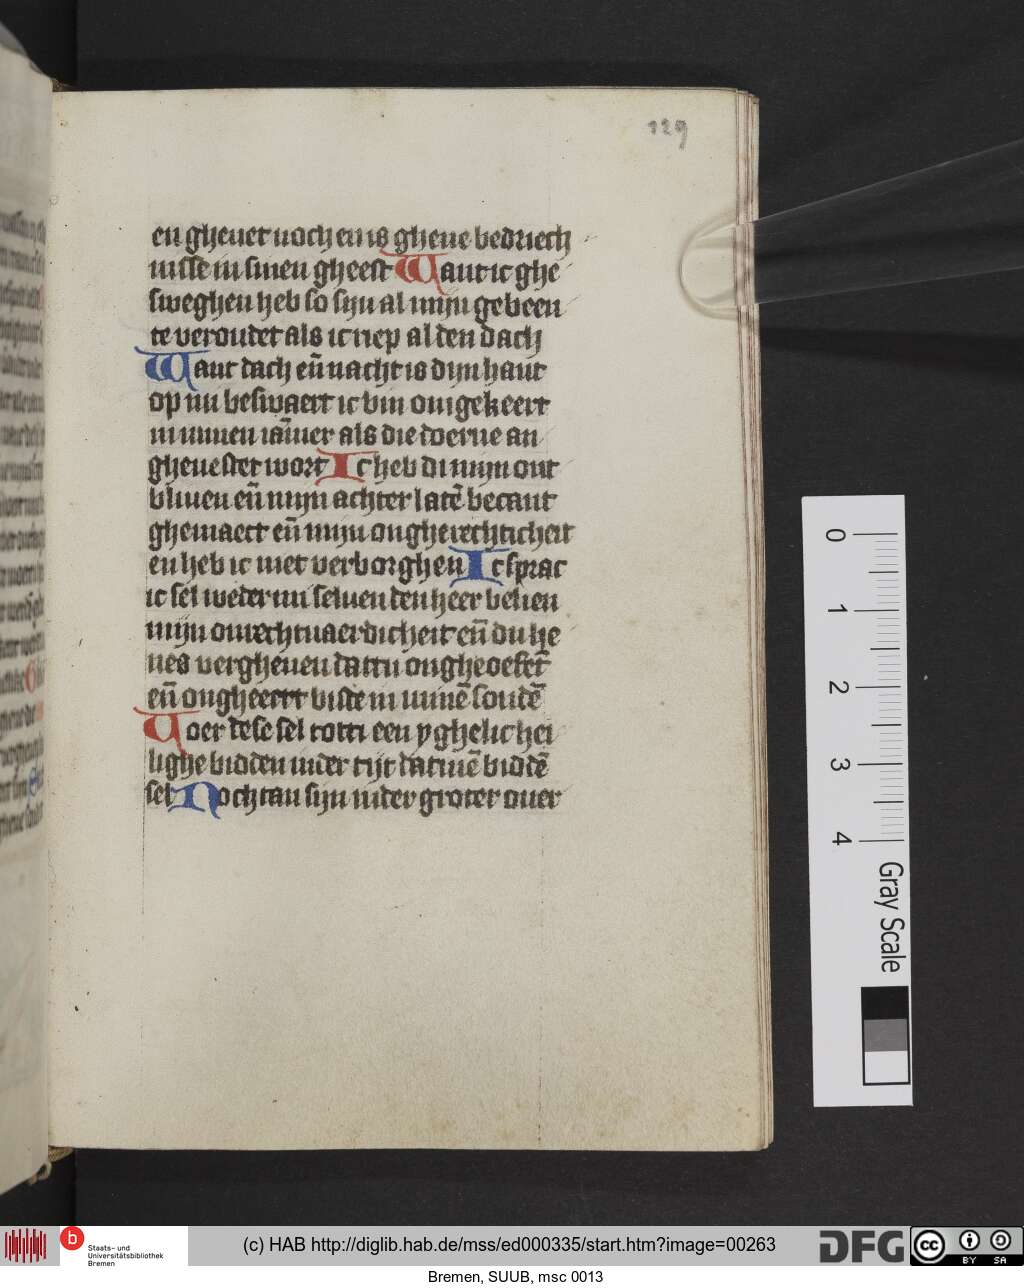 129
en gheuet noch en is gheue bedriech
nisse in sinen gheest Want ic ghe
sweghen heb so sijn al mijn gebeen
te veroudet als ic riep al den dach
Want dach eñ nacht is dijn hant
op mi beswaert ic bin omgekeert
in minen iam̄er als die doerne an
gheuestet wort Ic heb di mijn ont
bliuen eñ mijn achter latē becant
ghemaect eñ mijn ongherechticheit
en heb ic niet verborghen Ic sprac
ic sel weder mi seluen den heer belien
mijn onrechtuaerdicheit eñ du he
ues vergheuen dattu ongheoefet̄
eñ ongheeert biste in minē sondē
Voer dese sel totti een yghelic hei
lighe bidden in der tijt datmē biddē
sel Nochtan sijn in der groter ouer
0
1
2
3
4
Gray Scale
b Staats- und
Universitätsbibliothek
Bremen
(c) HAB http://diglib.hab.de/mss/ed000335/start.htm?image=00263
DFG
cc BY SA
Bremen, SUUB, msc 0013